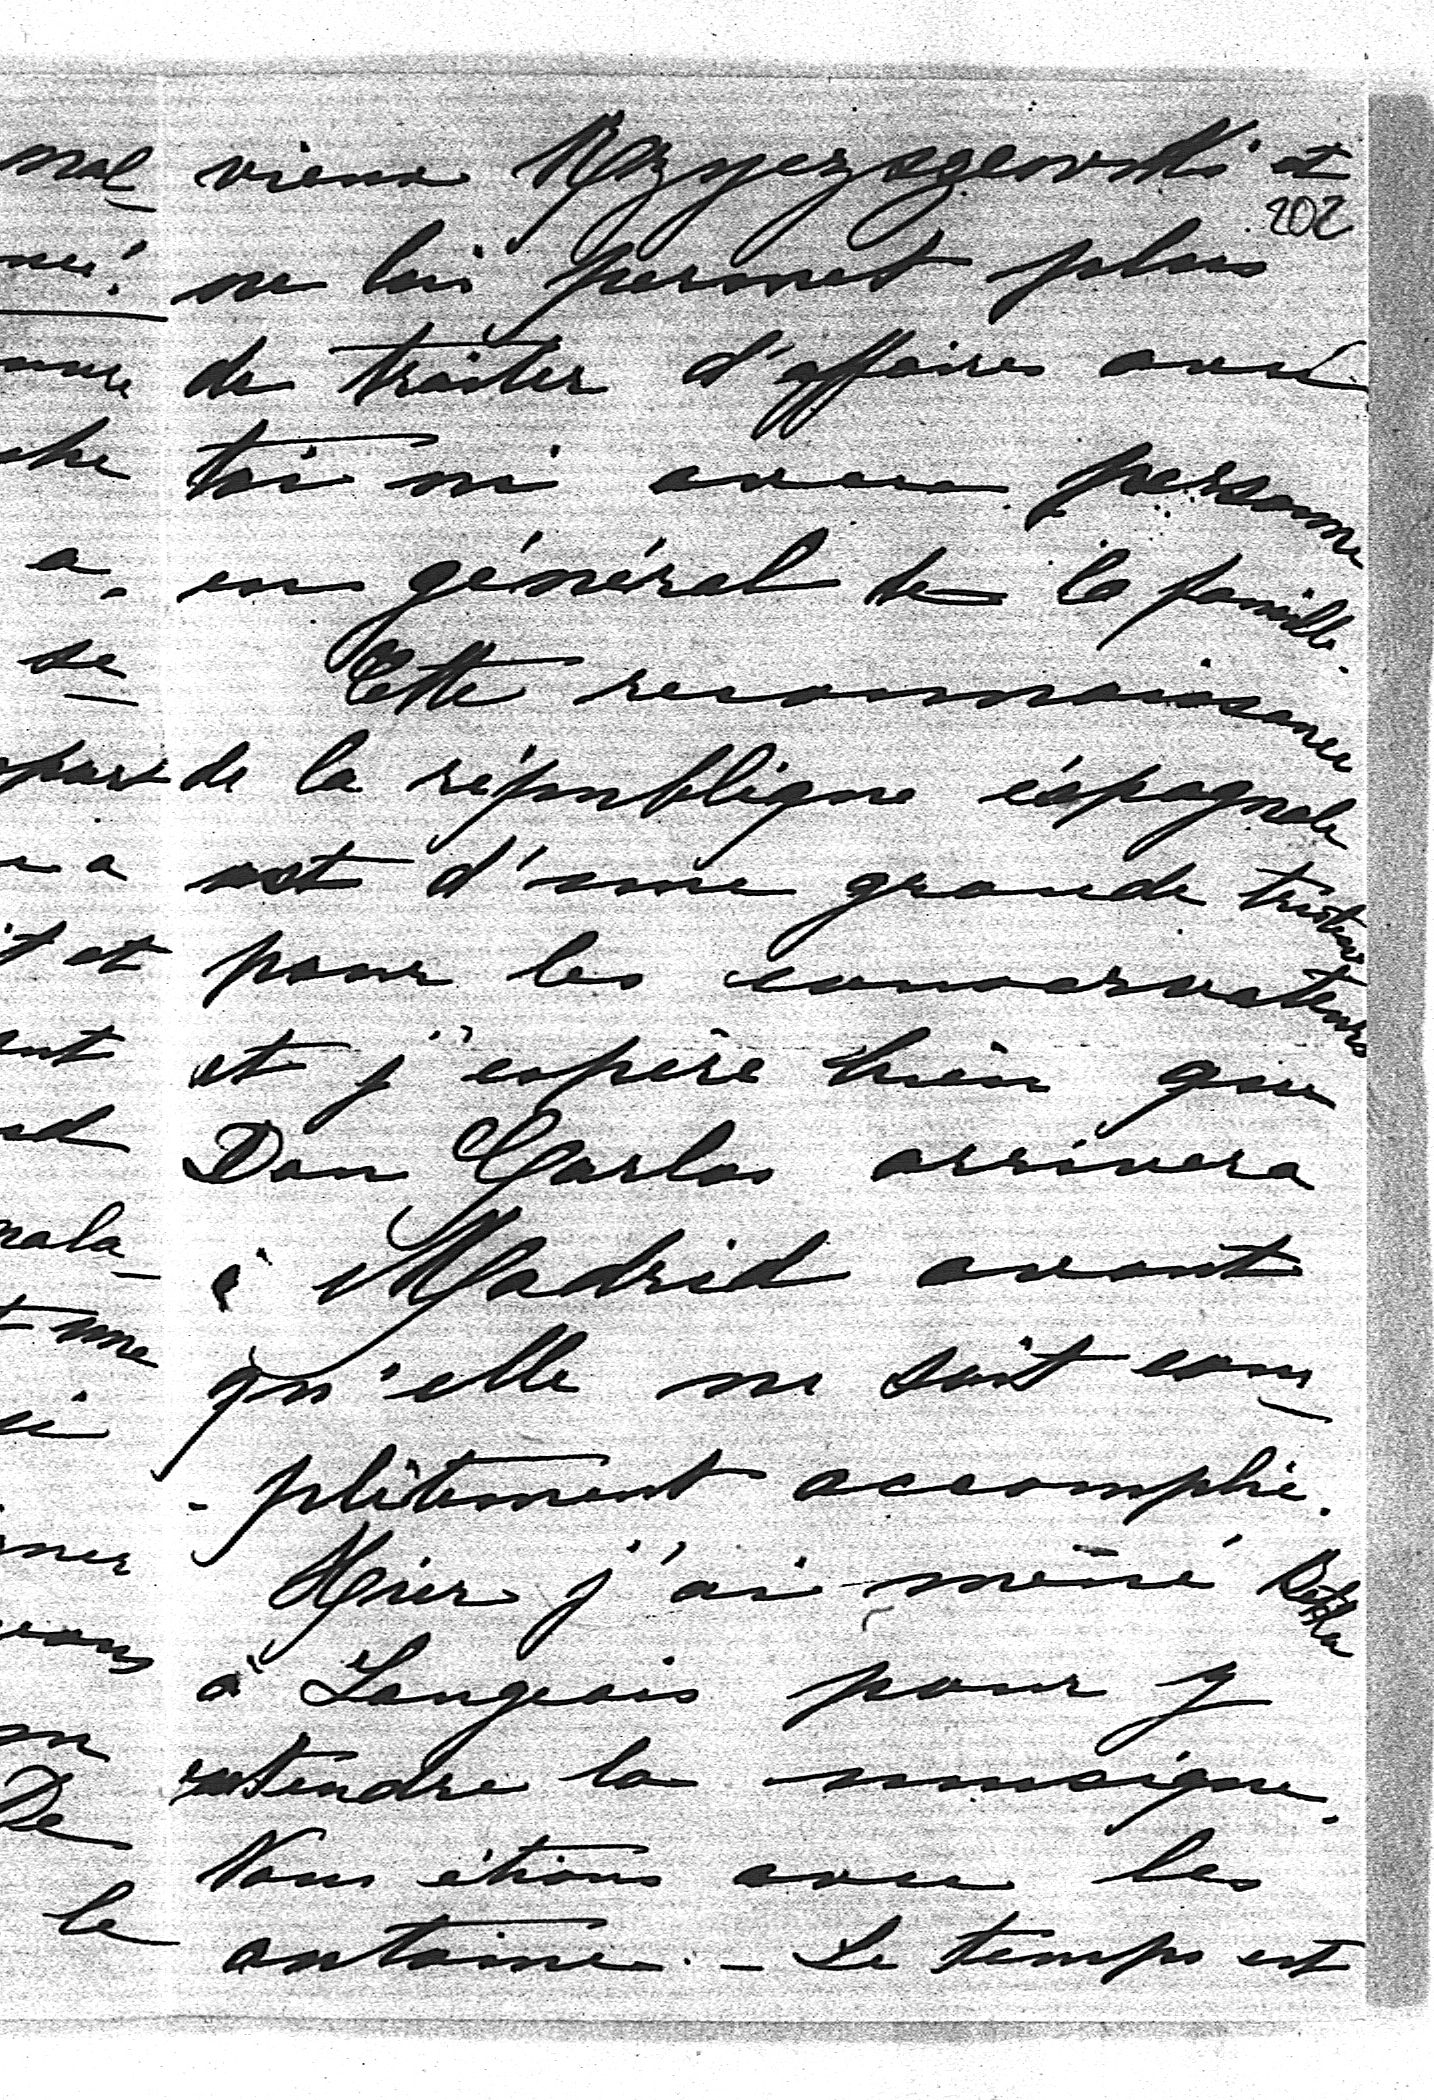 vieux Krzyczszewski et
202
ne lui permet plus
de traiter d'affaires avec
toi ni avec personne
en général de la famille.
Cette reconnaissance
de la république éspagnole
est d'une grande tristesse
pour les conservateurs
et j'espère bien que
Don Carlos arrivera
à Madrid avant
qu'elle ne soit com-
-plètement accomplie.
Hier j'ai mené
à Langeais pour y
entendre la musique.
Nous étions avec les
antoine. - Le temps est